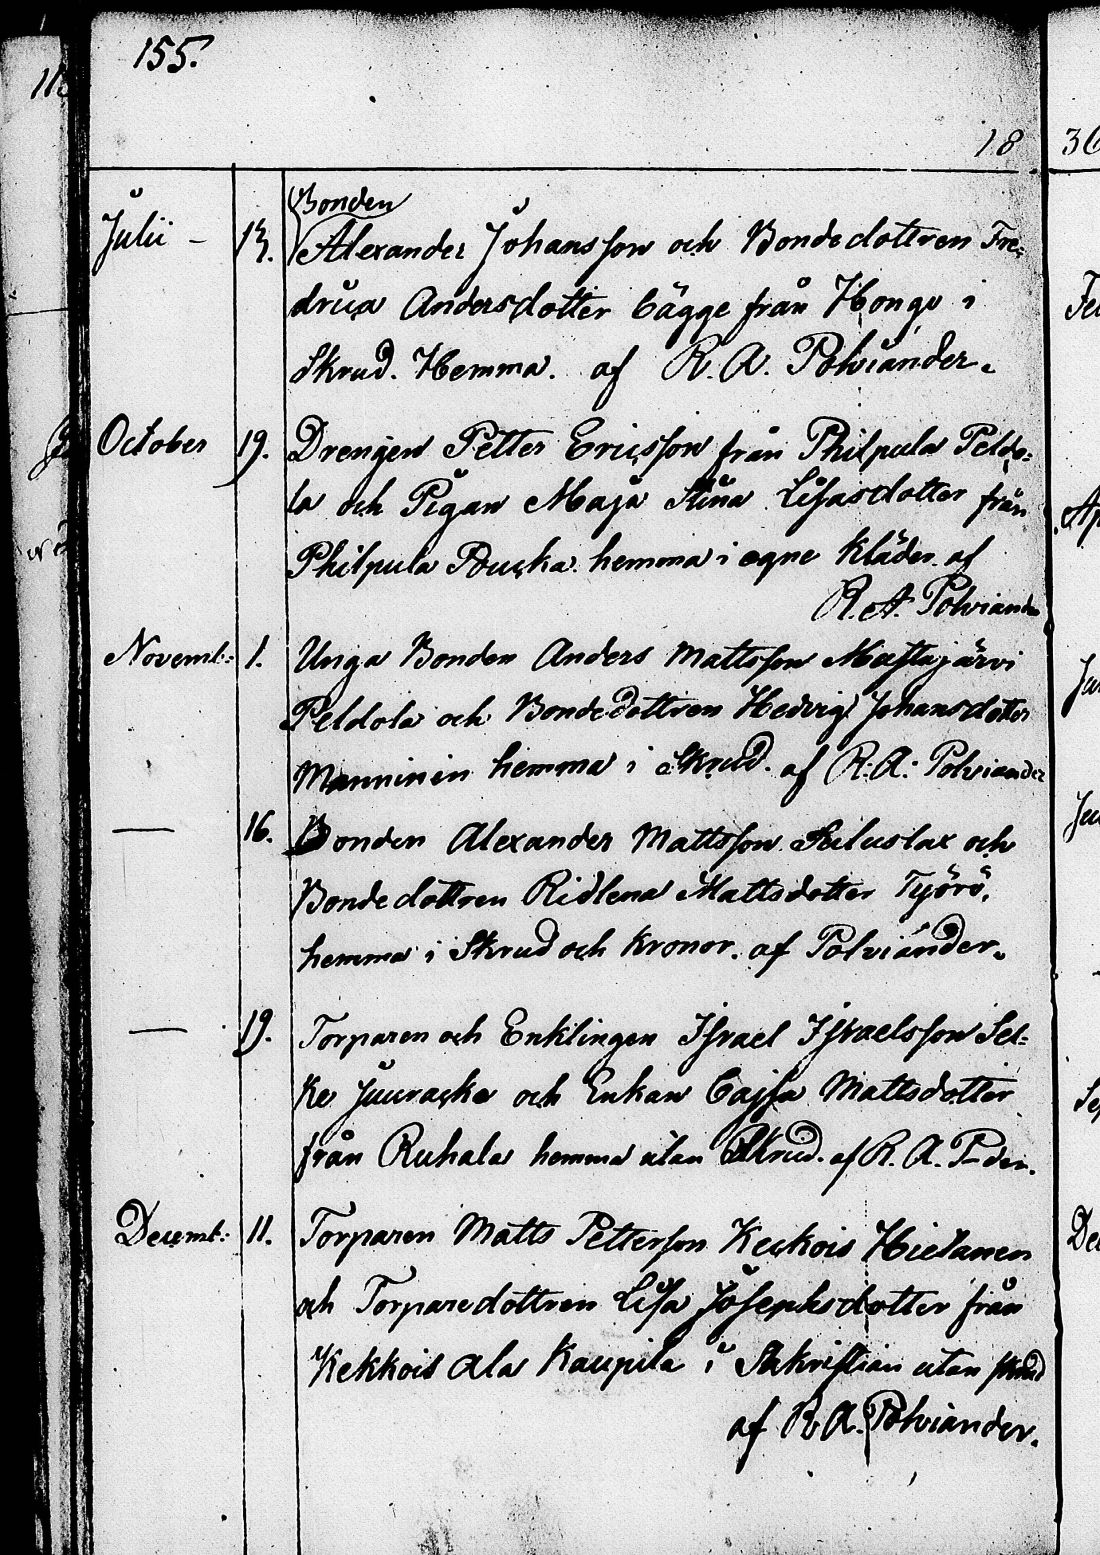 155.
18 36
Bonden
Julii – 13. Alexander Johansson och Bondedottren Fre-
drica Andersdotter bägge från Hongo i
Skrud. Hemma. af R. A. Polviander.
October 19. Drengen Petter Ericsson från Philpula Peldo-
la och Pigan Maja Stina Lisasdotter från
Philpula Pouska hemma i egne kläder. af
R. A. Polviander
Novemb: 1. Unga Bonden Anders Mattsson Mastajärvi
Peldola och Bondedottren Hedvig Johansdotter
Manninen hemma i Skrud. af R: A: Polviander
— 16. Bonden Alexander Mattsson och
Bondedottren Ridlena Mattsdotter Työrö,
hemma i Skrud och Kronor. af Polviander.
— 19. Torparen och Enklingen Israel Israelsson Sel-
ke och Enkan Cajsa Mattsdotter
från Ruhala hemma utan Skrud. af R. A. P–der.
Decemb: 11. Torparen Matts Petterson Keckois Hietanen
och Torparedottren Lisa Josephsdotter från
Kekkois Ala Kaupila i Sakristian utan skrud
af R A. Polviander.